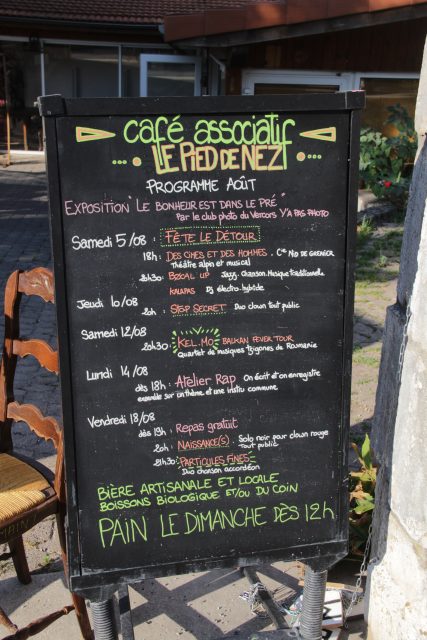 café associatif
LE PIED DE NEZ
PROGRAMME AOÛT
EXPOSITION "LE BONHEUR EST DANS LE PRÉ"
Par le club photo du Vercors Y'A PAS PHOTO
Samedi 5/08 : FÊTE LE DÉTOUR
18h : DES CIMES ET DES HOMMES. Cie NID DE GRENIER
Théâtre alpin et musical
20h30 : BZOAL UP Jazz, Chanson, Musique traditionnelle
KALAPAS Dj électro-hybride
Jeudi 10/08
20h : STEP SECRET Duo clown tout public
Samedi 12/08
20h30 : KEL.MO BALKAN FEVER TOUR
Quartet de musiques tziganes de Roumanie
Lundi 14/08
dès 18h : Atelier Rap On écrit et on enregistre
ensemble sur un thème et une instru commune
Vendredi 18/08
dès 19h : Repas gratuit
20h NAISSANCE(S). Solo noir pour clown rouge
Tout public
21h30 : PARTICULES FINES
Duo chanson accordéon
BIÈRE ARTISANALE ET LOCALE
BOISSONS BIOLOGIQUE ET/OU DU COIN
PAIN LE DIMANCHE DÈS 12h